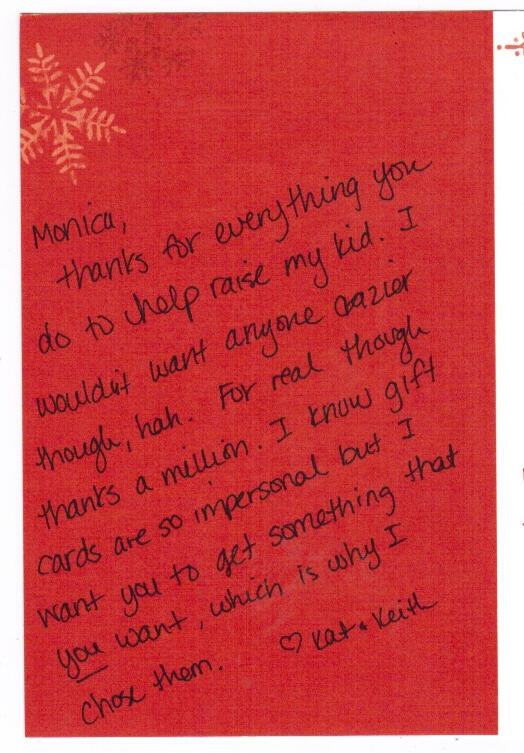 Monica,
thanks for everything you
do to help raise my kid. I
wouldn't want anyone crazier
though, hah. For real though
thanks a million. I know gift
cards are so impersonal but I
want you to get something that
you want, which is why I
chose them. ♡ Kat & Keith